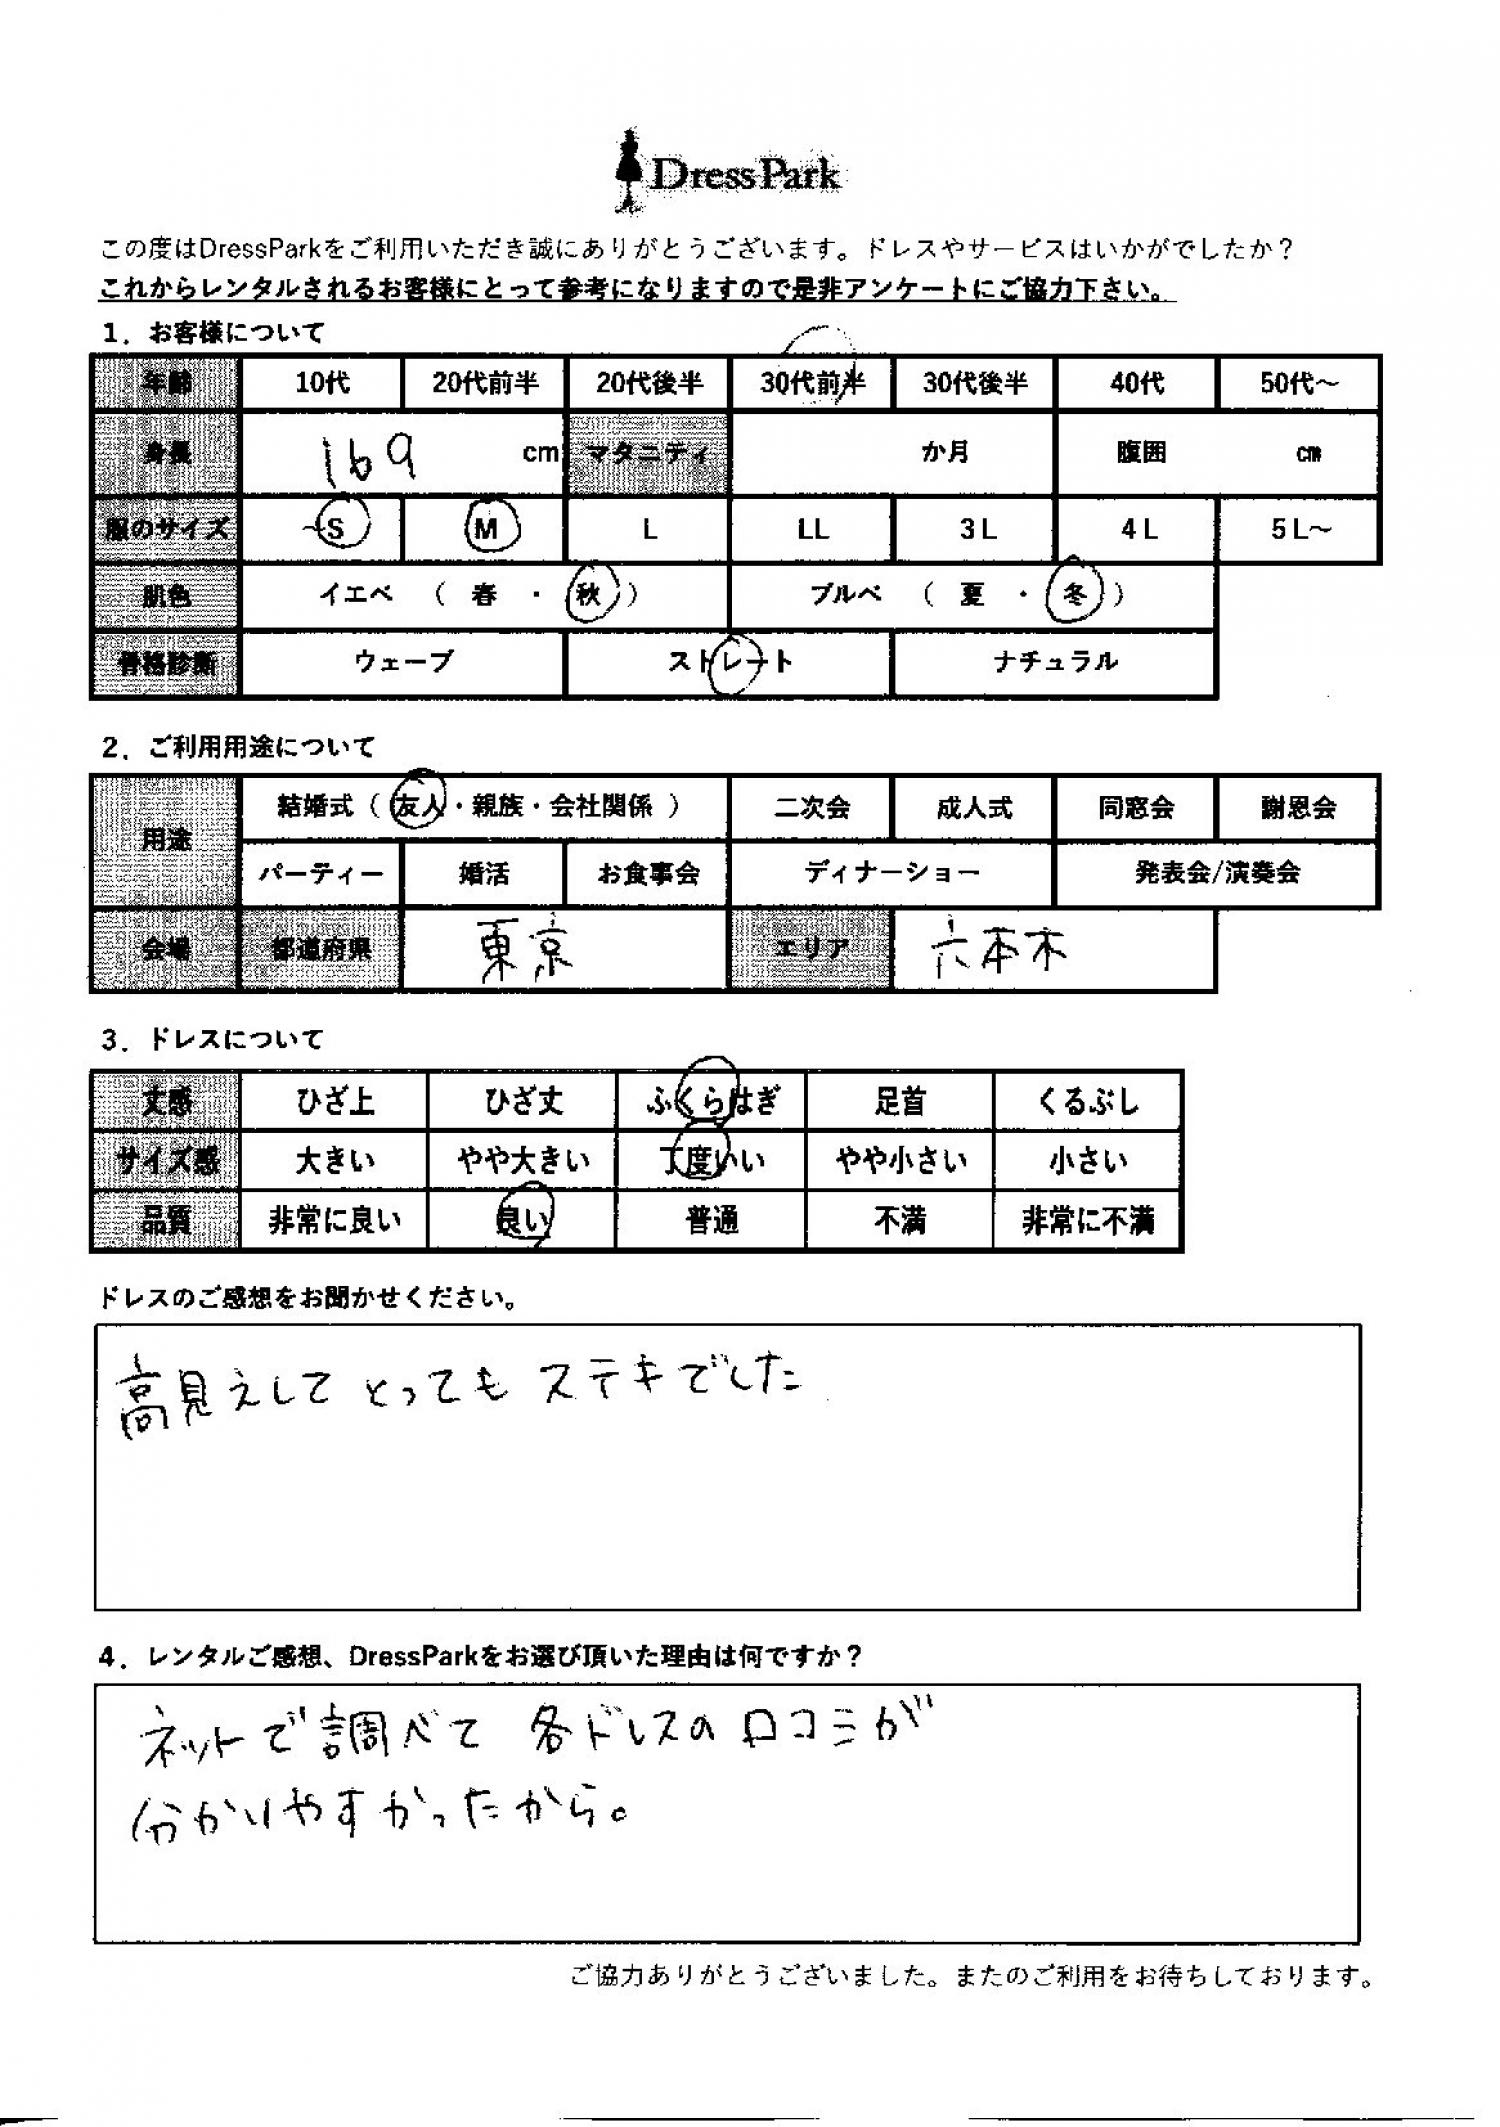 DressPark
この度はDressParkをご利用いただき誠にありがとうございます。ドレスやサービスはいかがでしたか？
これからレンタルされるお客様にとって参考になりますので是非アンケートにご協力下さい。
1．お客様について
年齢 10代 20代前半 20代後半 30代前半 30代後半 40代 50代～
身長 169 cm マタニティ か月 腹囲 cm
服のサイズ ～S M L LL 3L 4L 5L～
肌色 イエベ （ 春 ・ 秋 ） ブルベ （ 夏 ・ 冬 ）
骨格診断 ウェーブ ストレート ナチュラル
2．ご利用用途について
用途 結婚式（ 友人・親族・会社関係 ） 二次会 成人式 同窓会 謝恩会
パーティー 婚活 お食事会 ディナーショー 発表会/演奏会
会場 都道府県 東京 エリア 六本木
3．ドレスについて
丈感 ひざ上 ひざ丈 ふくらはぎ 足首 くるぶし
サイズ感 大きい やや大きい 丁度いい やや小さい 小さい
品質 非常に良い 良い 普通 不満 非常に不満
ドレスのご感想をお聞かせください。
高見えしてとってもステキでした
4．レンタルご感想、DressParkをお選び頂いた理由は何ですか？
ネットで調べて 各ドレスの口コミが
分かりやすかったから。
ご協力ありがとうございました。またのご利用をお待ちしております。